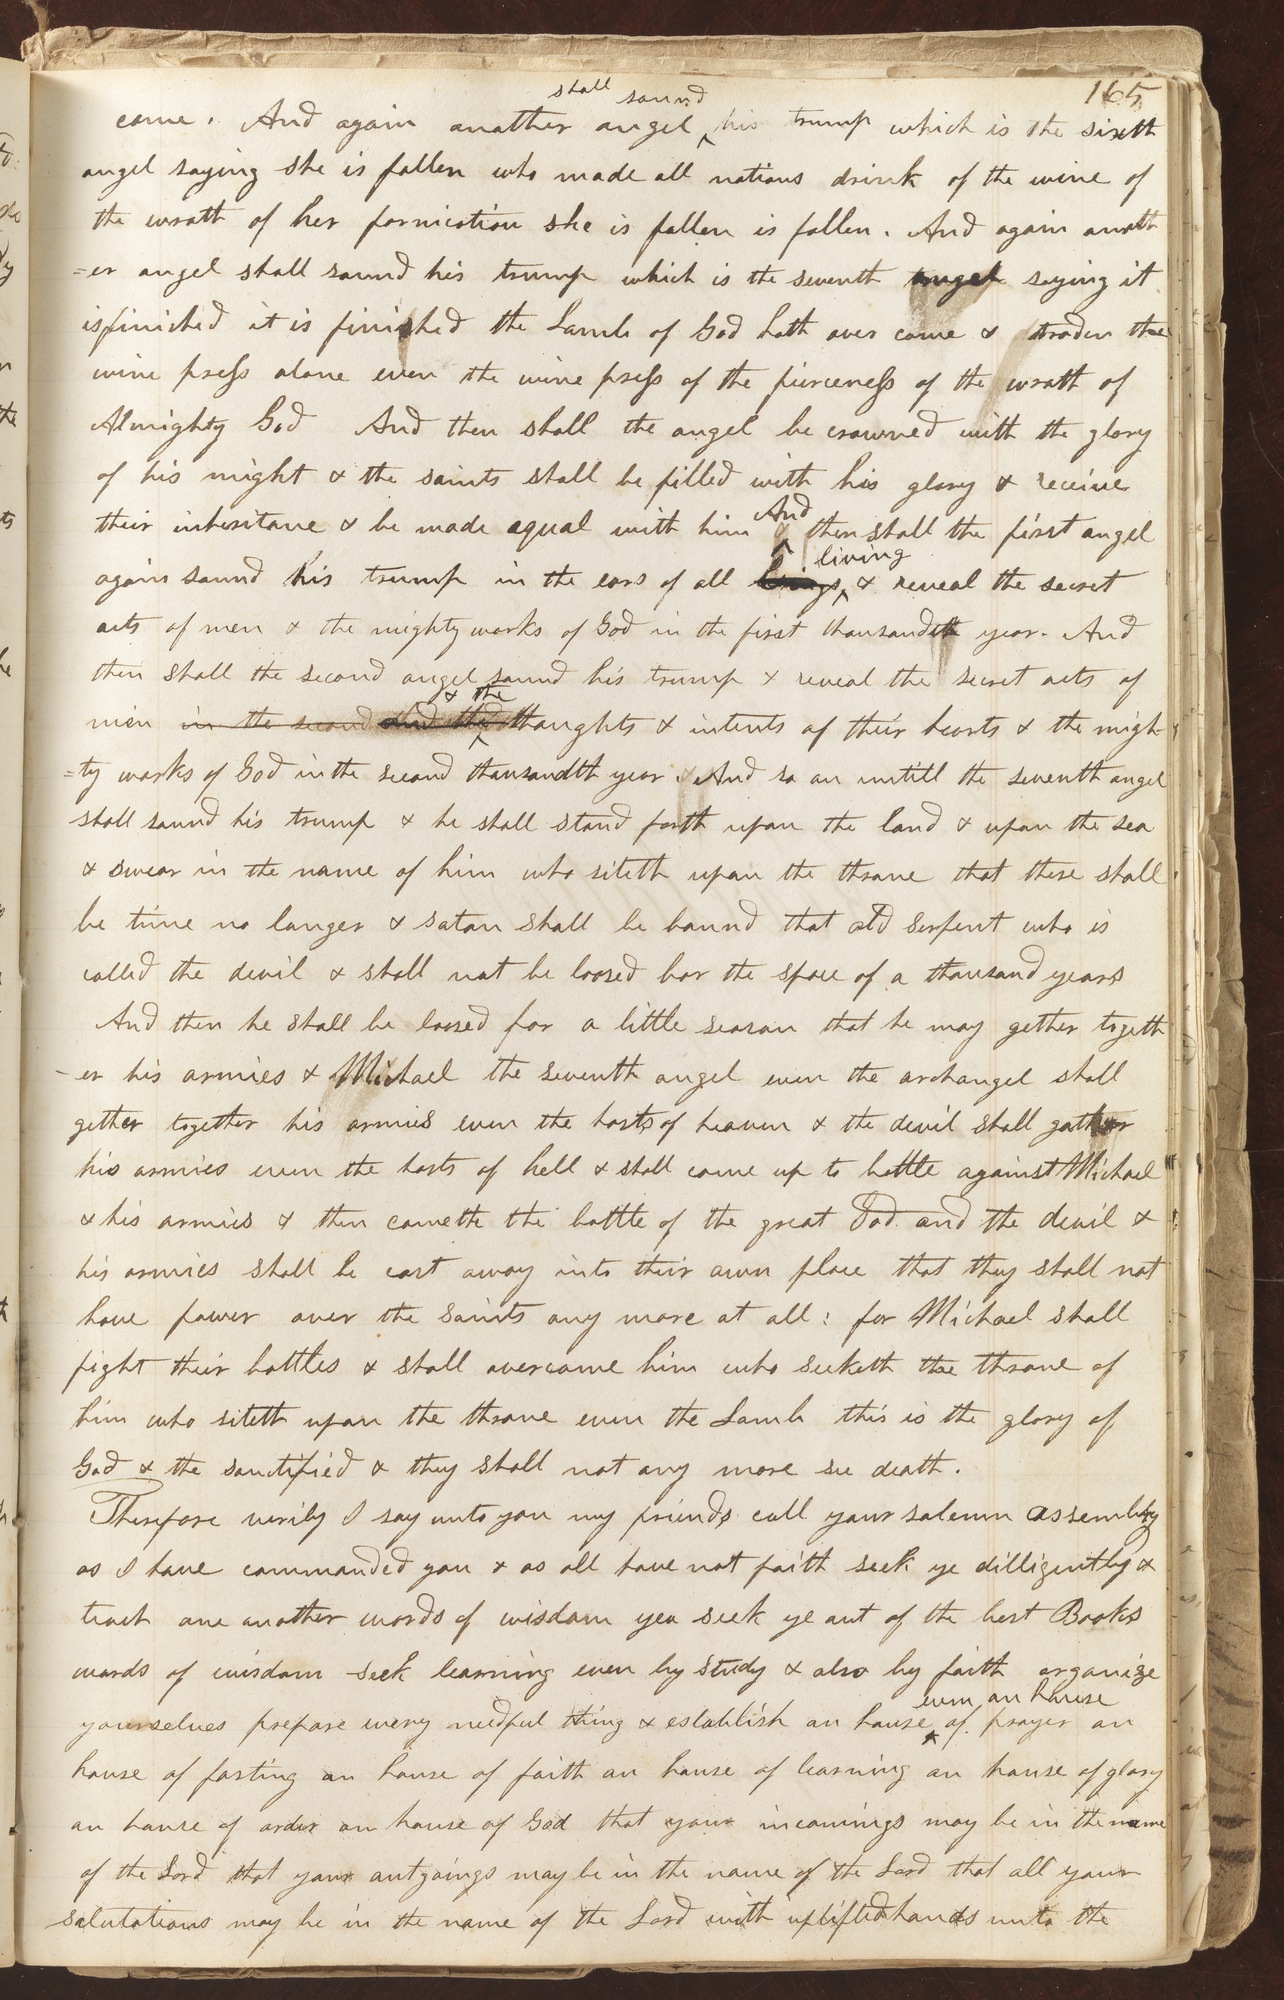 165
come. And again another angel shall sound his trump which is the sixth
angel saying she is fallen who made all nations drink of the wine of
the wrath of her fornication she is fallen is fallen. And again anoth
=er angel shall sound his trump which is the seventh angel saying it
is finished it is finished the Lamb of God hath over come & troden the
wine press alone even the wine press of the fierceness of the wrath of
Almighty God And then shall the angel be crowned with the glory
of his might & the saints shall be filled with his glory & receive
their inheritane & be made equal with him And then shall the first angel
again sound his trump in the ears of all living & reveal the secret
acts of men & the mighty works of God in the first thousandth year. And
then shall the second angel sound his trump & reveal the secret acts of
men in the second and the & the thoughts & intents of their hearts & the migh-
=ty works of God in the second thousandth year. And so on untill the seventh angel
shall sound his trump & he shall stand forth upon the land & upon the sea
& swear in the name of him who siteth upon the throne that there shall
be time no longer & satan shall be bound that old serpent who is
called the devil & shall not be loosed for the space of a thousand years
And then he shall be loosed for a little season that he may gether togeth
-er his armies & Michael the seventh angel even the archangel shall
gether together his armies even the hosts of heaven & the devil shall gather
his armies even the hosts of hell & shall come up to battle against Michael
& his armies & then cometh the battle of the great God and the devil &
his armies shall be cast away into their own place that they shall not
have power over the saints any more at all: for Michael shall
fight their battles & shall overcome him who seeketh the throne of
him who siteth upon the throne even the Lamb this is the glory of
God & the sanctified & they shall not any more see death.
Therefore verily I say unto you my friends call your solemn assembly
as I have commanded you & as all have not faith seek ye dilligently &
teach one another words of wisdom yea seek ye out of the best Books
words of wisdom seek learning even by study & also by faith organize
yourselves prepare every needful thing & establish an house even an house of prayer an
house of fasting an house of faith an house of learning an house of glory
an house of order an house of God that your incomings may be in the name
of the Lord that your outgoings may be in the name of the Lord that all your
salutations may be in the name of the Lord with uplifted hands unto the